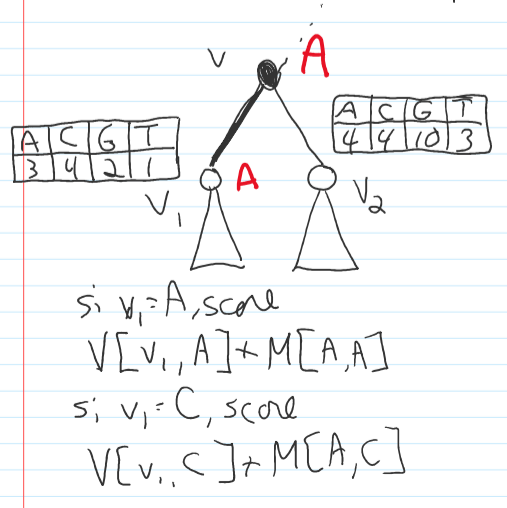 v A
A C G T
4 4 10 3
A C G T
3 4 2 1
A
V1
V2
si v1=A, score
V[v1, A]+M[A,A]
si v1=C, score
V[v1, C]+M[A,C]